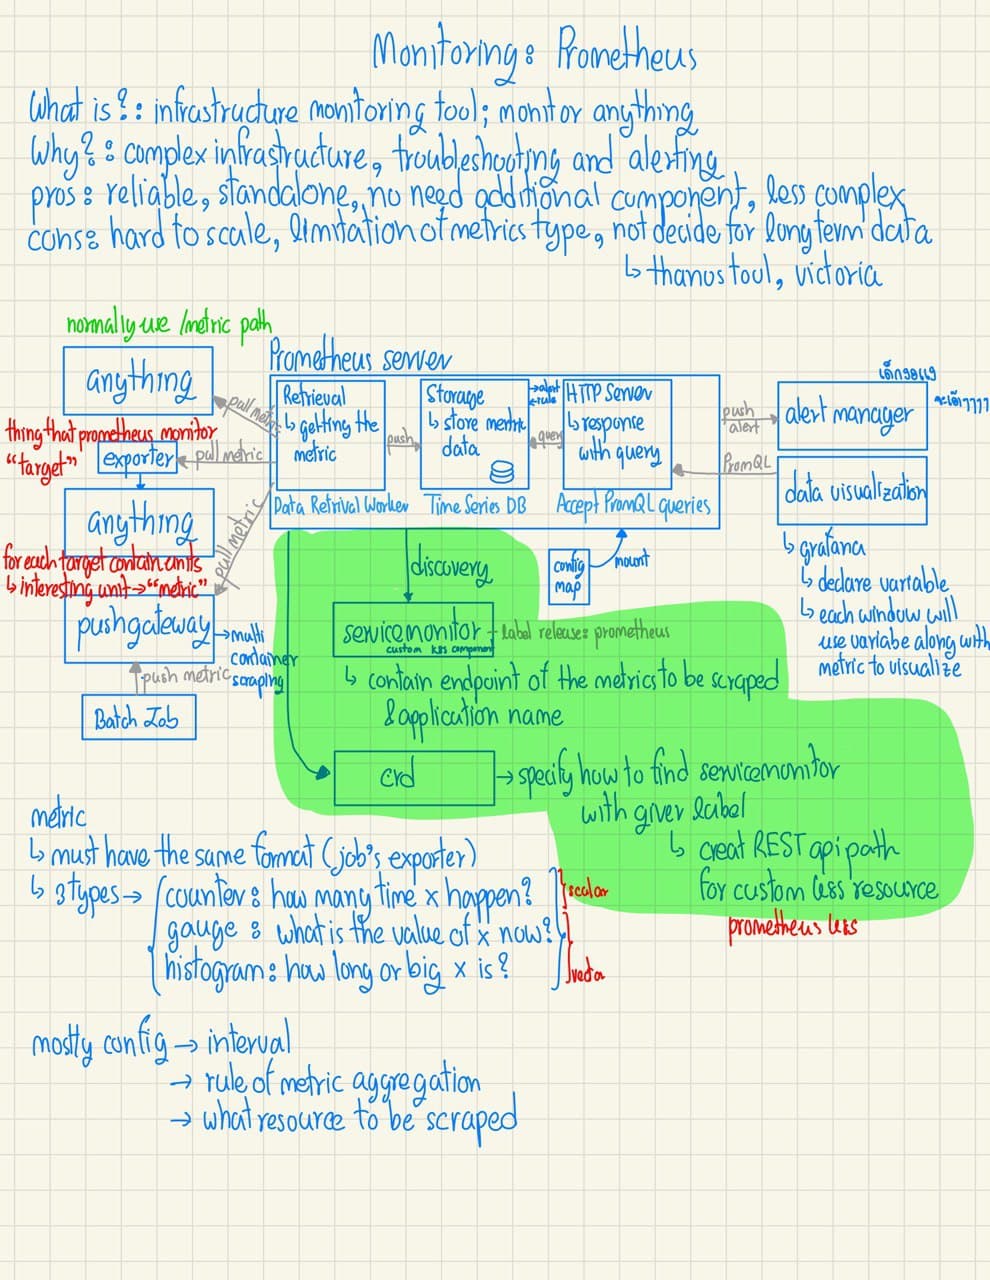 Monitoring: Prometheus
What is?: infrastructure monitoring tool; monitor anything
Why?: complex infrastructure, troubleshooting and alerting
pros: reliable, standalone, no need additional component, less complex
cons: hard to scale, limitation of metrics type, not decide for long term data
↳ thanos tool, victoria
normally use /metric path
anything
pull metric
thing that prometheus monitor
"target"
exporter
pull metric
anything
for each target contain units
↳ interesting unit → "metric"
pull metric
pushgateway
→ multi
container
scraping
push metric
Batch Job
Prometheus server
Retrieval
↳ getting the
metric
Data Retrival Worker
push
Storage
↳ store metric
data
Time Series DB
→ alert
← rule
query
HTTP Server
↳ response
with query
Accept PromQL queries
push
alert
alert manager
PromQL
data visualization
↳ grafana
↳ declare variable
↳ each window will
use variabe along with
metric to visualize
discovery
config
map
mount
servicemonitor
custom k8s component
label release: prometheus
↳ contain endpoint of the metrics to be scraped
& application name
crd
→ specify how to find servicemonitor
with giver label
↳ creat REST api path
for custom k8s resource
prometheus k8s
metric
↳ must have the same format (job's exporter)
↳ 3 types →
counter: how many time x happen?
gauge: what is the value of x now?
histogram: how long or big x is?
scalar
vector
mostly config → interval
→ rule of metric aggregation
→ what resource to be scraped